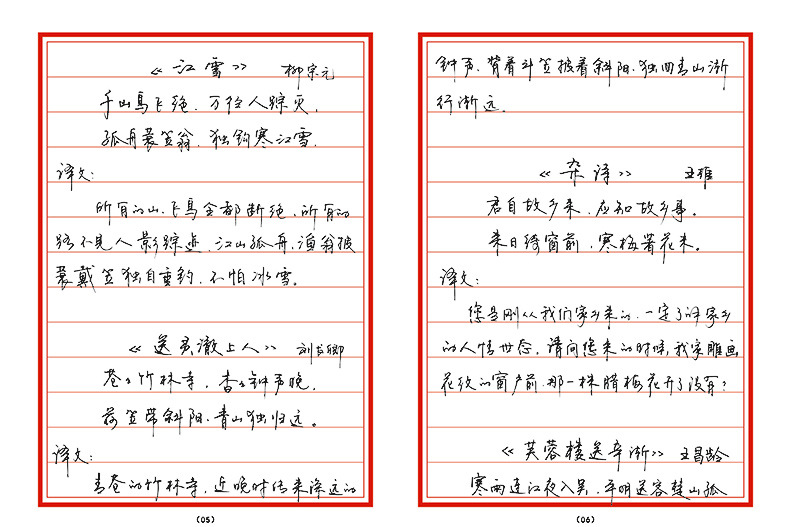 《江雪》 柳宗元
千山鸟飞绝，万径人踪灭，
孤舟蓑笠翁，独钓寒江雪。
译文：
所有的山，飞鸟全都断绝，所有的
路不见人影踪迹，江山孤舟，渔翁披
蓑戴笠独自垂钓，不怕冰雪。
《送灵澈上人》 刘长卿
苍苍竹林寺，杳杳钟声晚，
荷笠带斜阳，青山独归远。
译文：
青苍的竹林寺，近晚时传来深远的
(05)
钟声，背着斗笠披着斜阳，独回青山渐
行渐远。
《杂诗》 王维
君自故乡来，应知故乡事。
来日绮窗前，寒梅著花未。
译文：
您是刚从我们家乡来的，一定了解家乡
的人情世态，请问您来的时候，我家雕画
花纹的窗户前，那一株腊梅花开了没有？
《芙蓉楼送辛渐》 王昌龄
寒雨连江夜入吴，平明送客楚山孤
(06)